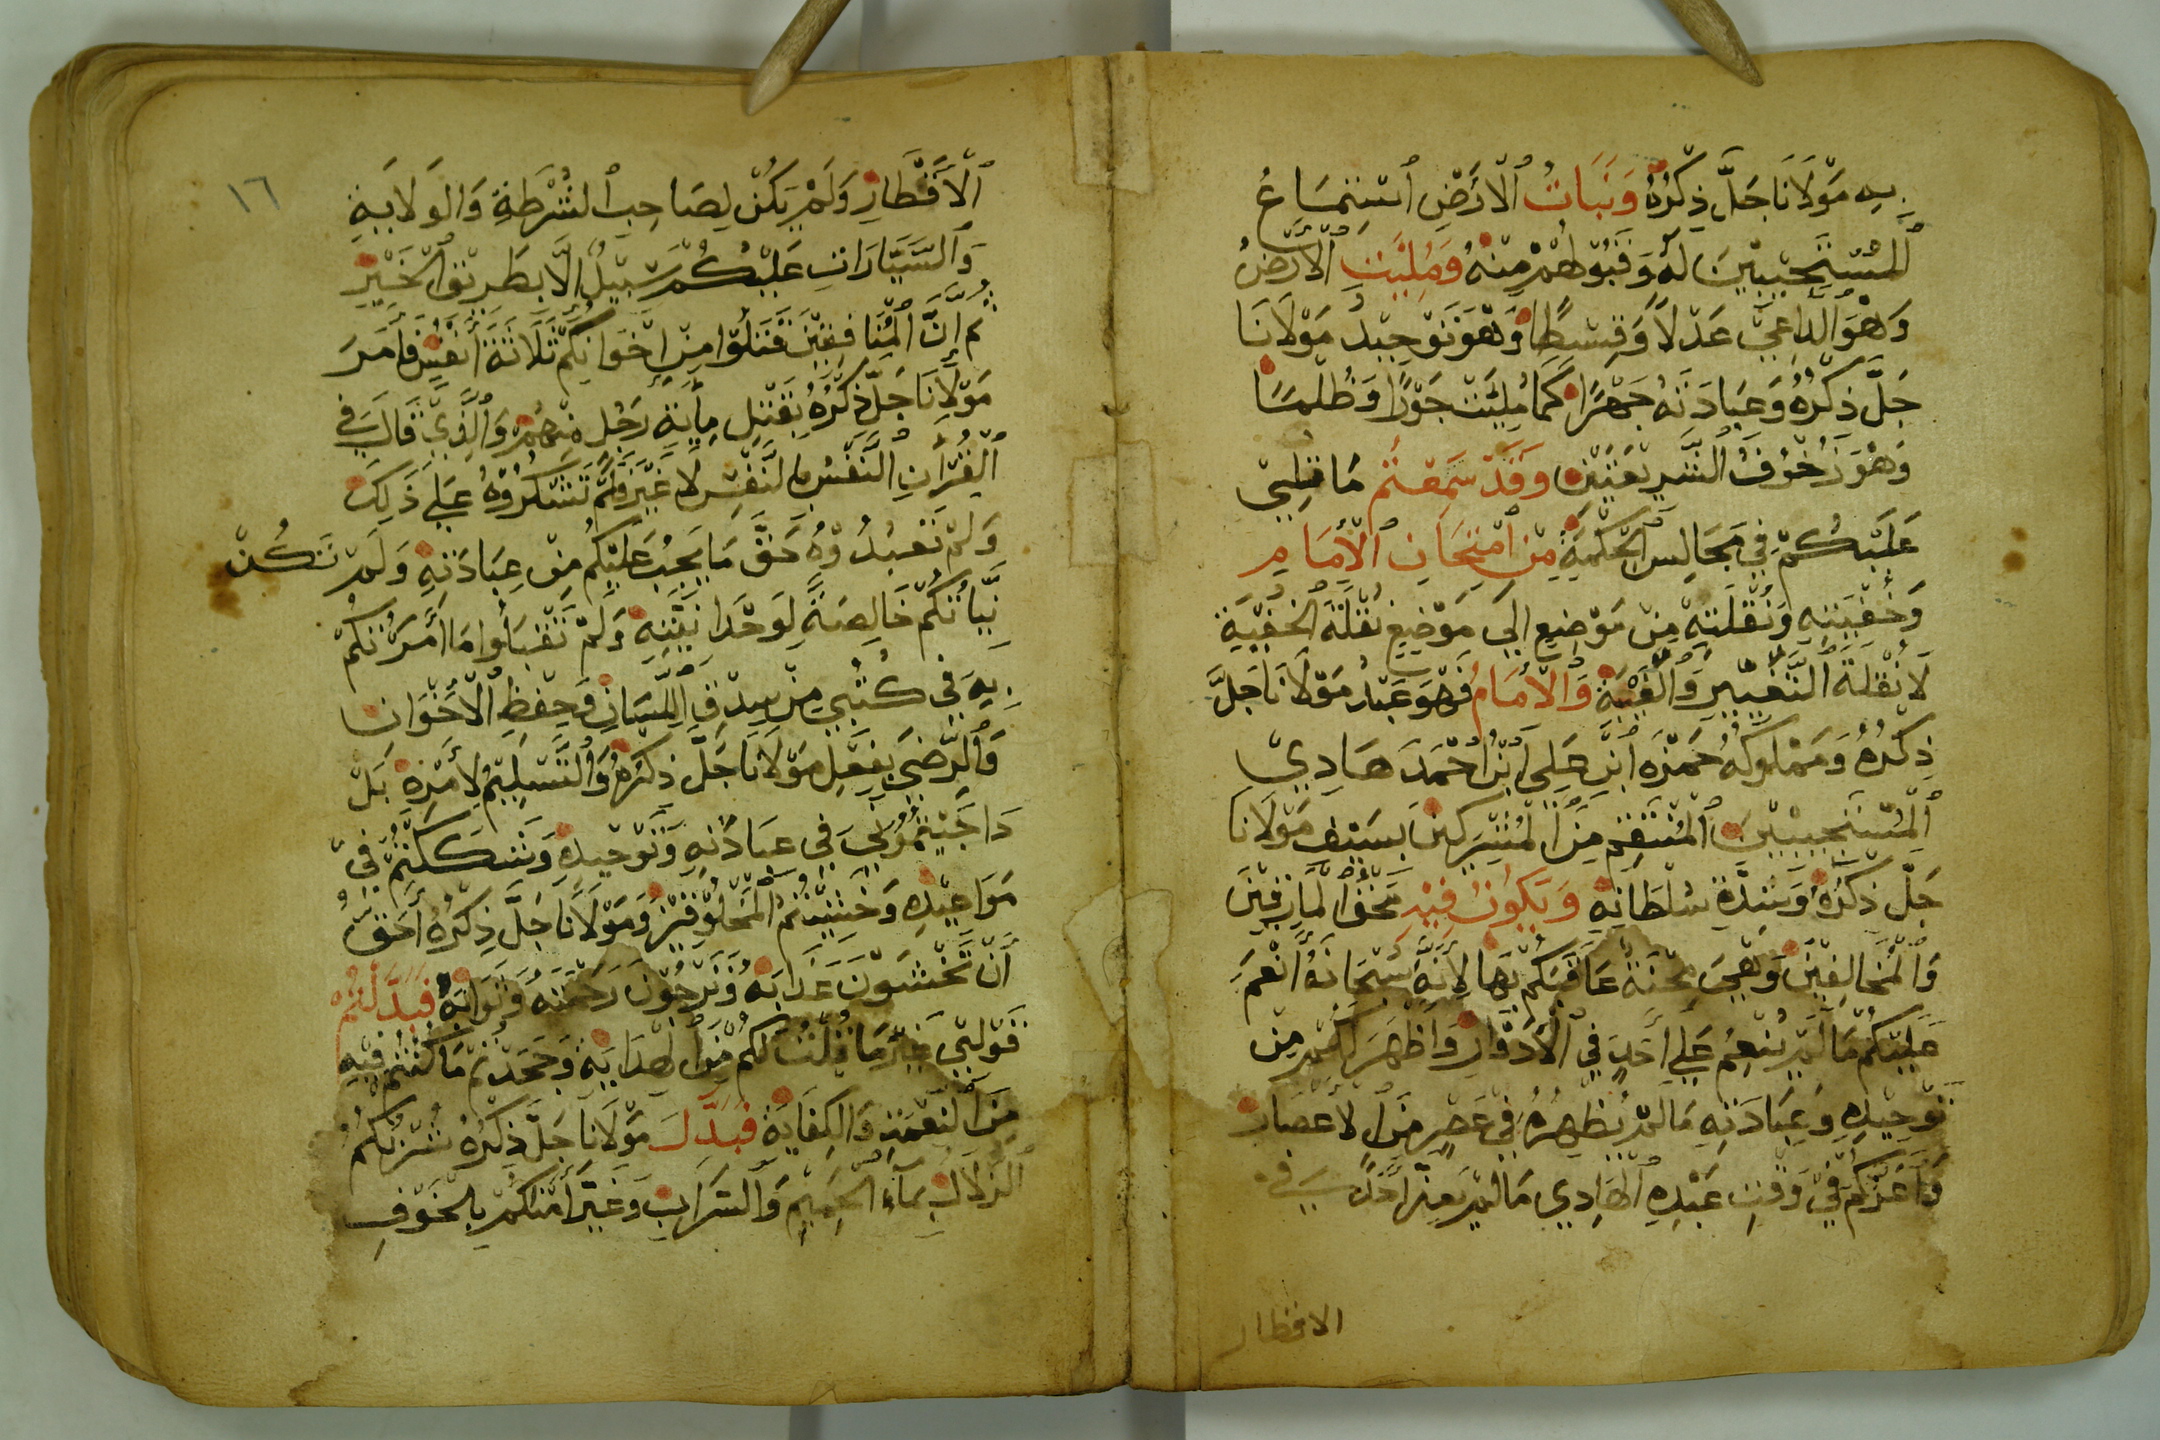 به مولانا جلّ ذكرُهُ ونبات الارض استماع
المستجيبين له وقبولهم منهُ ومليت الارضُ
وهو الداعي عدلاً وقسطًا وهو توحيد مولانا
جلّ ذكرُهُ وعبادته جهرًا كما مليّت جورًا وظلمًا
وهو زخرف الشريعتين وقد سمعتم ما قلي
عليكم في مجالس الحكمة من امتحان الامام
وخفيته ونقلته من موضع الى موضع نقلة الخفية
لا نقلة التغيير والغيبة والامام فهو عبد مولانا جلّ
ذكرُهُ ومملوكه حمزه ابن علي ابن احمد هادي
المستجيبين المنتقم من المشركين بسيف مولانا
جلّ ذكرُهُ وشدّة سلطانه ويكون فيه محق المارقين
والمخالفين وهي محنة عاقبكم بها لانّه سبحانه انعم
عليكم ما لم ينعم علي أحدٍ في الادوار واظهر لكم من
توحيده وعبادته ما لم يظهره في عصرٍ من الاعصار
واعزكم في وقت عبده الهادي ما لم يعزّ احدًا في
الاقطار
١٦
الاقطار ولم يكن لصاحب الشرطة والولاية
والسيّارات عليكم سبيلٌ الّا بطريق الخير
ثم إنّ المنافقين قتلوا من إخوانكم ثلاثة أنفس فأمر
مولانا جلّ ذكرُهُ بقتل مأية رجل منهم والذي قال في
القرآن النفس بالنفس لا غير ولم تشكروه علي ذلك
ولم تعبدوه حقّ ما يجب عليكم من عبادته ولم تكن
نيّاتكم خالصةً لوحدانيته ولم تقبلوا ما أمرتكم
به في كتبي من سدق اللسان وحفظ الاخوان
والرضى بفعل مولانا جلّ ذكرُهُ والتسليم لأمره بل
داجيتموني في عبادته وتوحيده وشككتم في
مواعيده وخشيتم المخلوقين ومولانا جلّ ذكرُهُ أحقّ
أن تخشون عذابه وترجون رحمته وثوابه فبدّلتم
قولي غير ما قلت لكم من الهداية وجحدتم ما كنتم فيه
من النعمة والكفاية فبدّل مولانا جلّ ذكرُهُ شربكم
الزلال بماء الحميم والسراب وغيّر أمنكم بالخوف